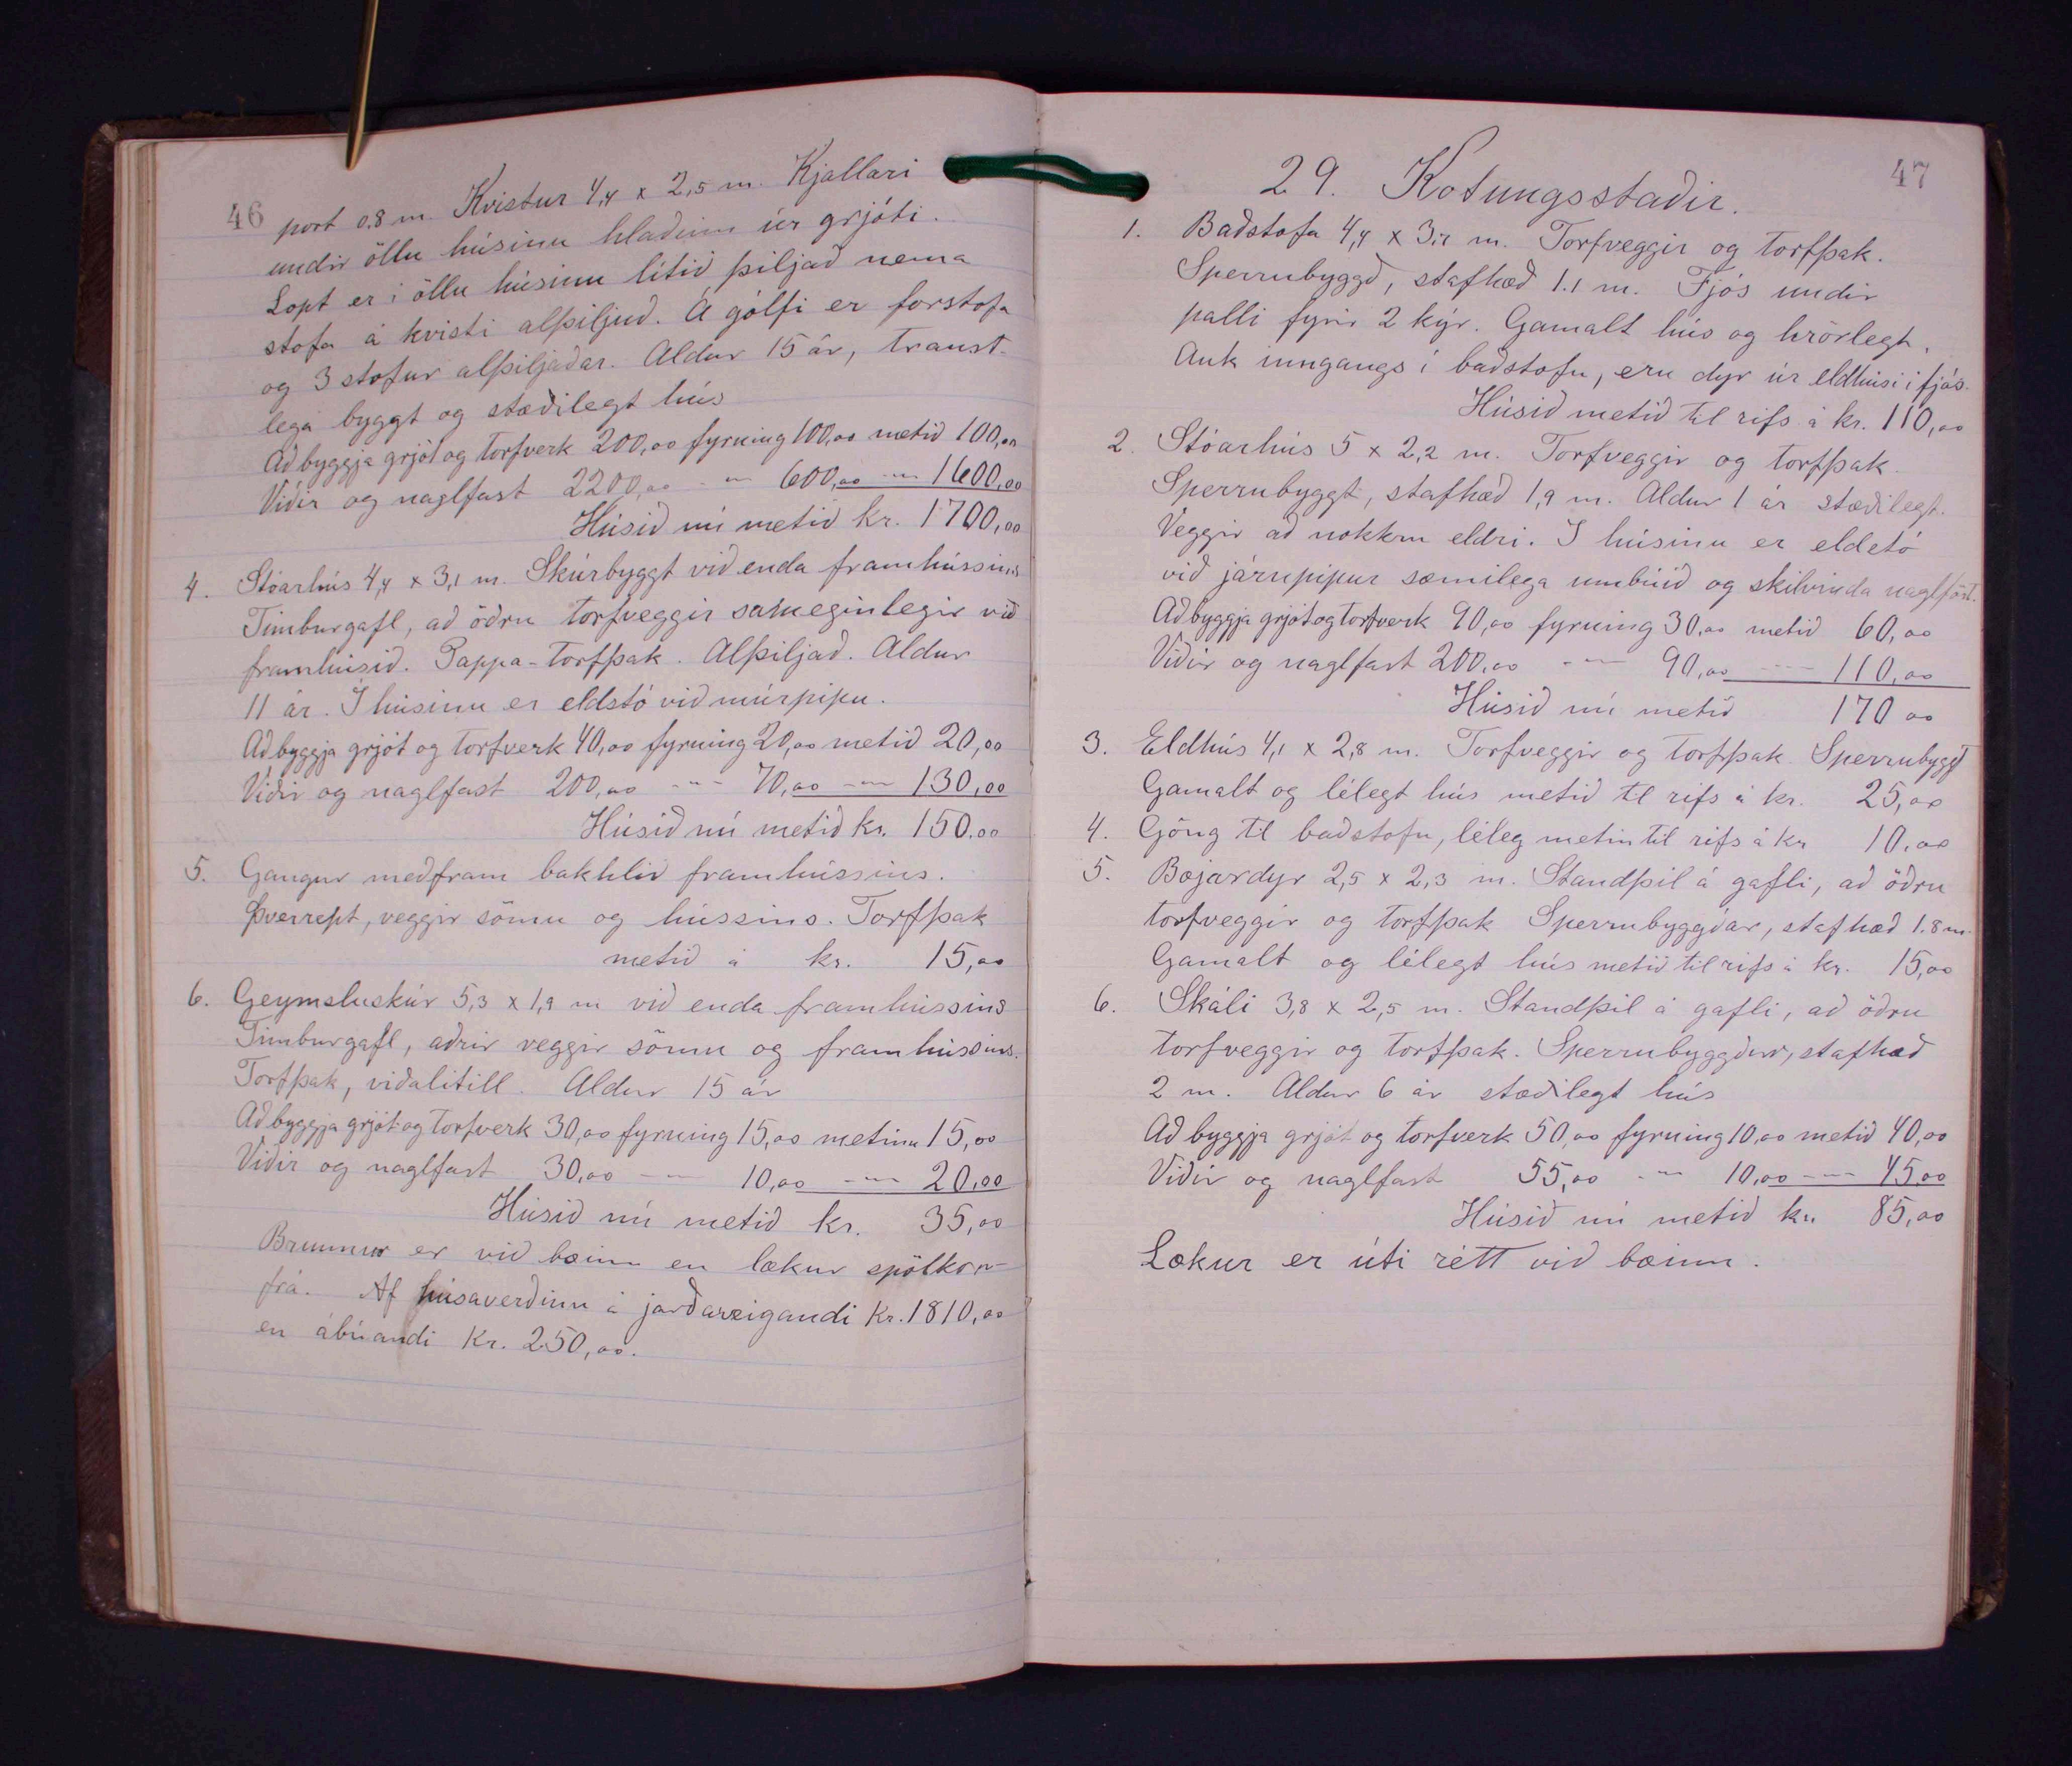 46
port 0.8 m. Kvistur 4,4 x 2,5 m. Kjallari
undir öllu húsinu hlaðinn úr grjóti.
Lopt er í öllu húsinu lítið þiljað nema
stofa á kvisti alþiljuð. Á gólfi er forstofa
og 3 stofur alþiljaðar. Aldur 15 ár, traust-
lega byggt og stæðilegt hús
Að byggja grjót og torfverk 200,00 fyrning 100,00 metið 100,00
Viðir og naglfast 2200,00 -"- 600,00 -"- 1600,00
Húsið nú metið kr. 1700,00
4. Stóarhús 4,4 x 3,1 m. Skúrbyggt við enda framhússins
Timburgafl, að öðru torfveggir sameginlegir við
framhúsið. Pappa-torfþak. Alþiljað. Aldur
11 ár. Í húsinu er eldstó við múrpípu.
Að byggja grjót og torfverk 40,00 fyrning 20,00 metið 20,00
Viðir og naglfast 200,00 -"- 70,00 -"- 130,00
Húsið nú metið kr. 150.00
5. Gangur meðfram bakhlið framhússins.
Þverrept, veggir sömu og hússins. Torfþak
metið á kr. 15,00
6. Geymsluskúr 5,3 x 1,9 m við enda framhússins
Timburgafl, aðrir veggir sömu og framhússins.
Torfþak, viðalítill. Aldur 15 ár
Að byggja grjót og torfverk 30,00 fyrning 15,00 metinn 15,00
Viðir og naglfast 30,00 -"- 10,00 -"- 20,00
Húsið nú metið kr. 35,00
Brunnur er við bæinn en lækur spölkorn
frá. Af húsaverðinu á jarðareigandi Kr. 1810,00
en ábúandi Kr. 250,00.
47
29. Kotungsstaðir.
1. Baðstofa 4,4 x 3,7 m. Torfveggir og torfþak.
Sperrubyggð, stafhæð 1.1 m. Fjós undir
palli fyrir 2 kýr. Gamalt hús og hrörlegt.
Auk inngangs í baðstofu, eru dyr úr eldhúsi í fjós.
Húsið metið til rifs á kr. 110,00
2. Stóarhús 5 x 2,2 m. Torfveggir og torfþak.
Sperrubyggt, stafhæð 1,9 m. Aldur 1 ár stæðilegt.
Veggir að nokkru eldri. Í húsinu er eldstó
við járnpípur sæmilega umbúið og skilvinda naglföst.
Að byggja grjót og torfverk 90,00 fyrning 30,00 metið 60,00
Viðir og naglfast 200,00 -"- 90,00 -"- 110,00
Húsið nú metið 170 00
3. Eldhús 4,1 x 2,8 m. Torfveggir og torfþak. Sperrubyggt
Gamalt og lélegt hús metið til rifs á kr. 25,00
4. Göng til baðstofu, léleg metin til rifs á kr 10,00
5. Bæjardyr 2,5 x 2,3 m. Standþil á gafli, að öðru
torfveggir og torfþak Sperrubyggðar, stafhæð 1.8 m.
Gamalt og lélegt hús metið til rifs á kr. 15,00
6. Skáli 3,8 x 2,5 m. Standþil á gafli, að öðru
torfveggir og torfþak. Sperrubyggður, stafhæð
2 m. Aldur 6 ár stæðilegt hús
Að byggja grjót og torfverk 50,00 fyrning 10,00 metið 40,00
Viðir og naglfast 55,00 -"- 10,00 -"- 45,00
Húsið nú metið kr. 85,00
Lækur er úti rétt við bæinn.